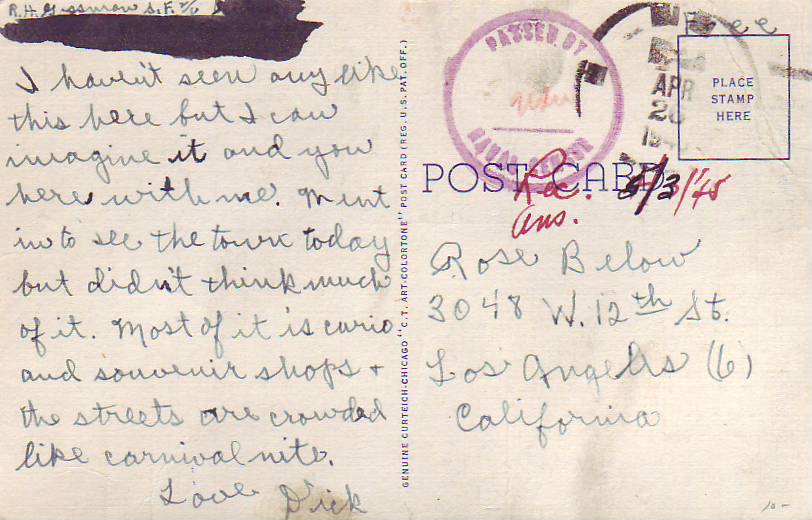 R.H. Gissman S.F. 2/c
I haven't seen any like
this here but I can
imagine it and you
here with me. Went
in to see the town today
but didn't think much
of it. Most of it is curio
and souvenir shops +
the streets are crowded
like carnival nite.
Love Dick
GENUINE CURTEICH-CHICAGO "C.T. ART-COLORTONE" POST CARD (REG. U.S. PAT. OFF.)
PASSED BY
NAVAL CENSOR
Free
APR
PLACE
STAMP
HERE
POST CARD
Rec. 5/3/45
ans.
Rose Below
3048 W. 12th St.
Los Angeles (6)
California
10-